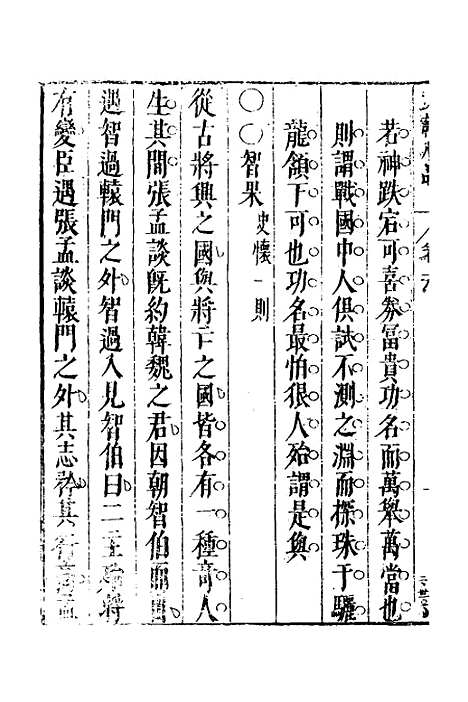 若神跌宕可喜券冨貴功名而萬舉萬當也
則謂戰國中人俱試不測之淵而探珠于驪
龍頷下可也功名最怕很人殆謂是與
〇〇智果 史懷一則
從古將興之國與將亡之國皆各有一種奇人
生其間張孟談旣約韓魏之君因朝智伯而出
遇智過轅門之外智過入見智伯曰二主殆將
有變臣遇張孟談轅門之外其志矜其行高